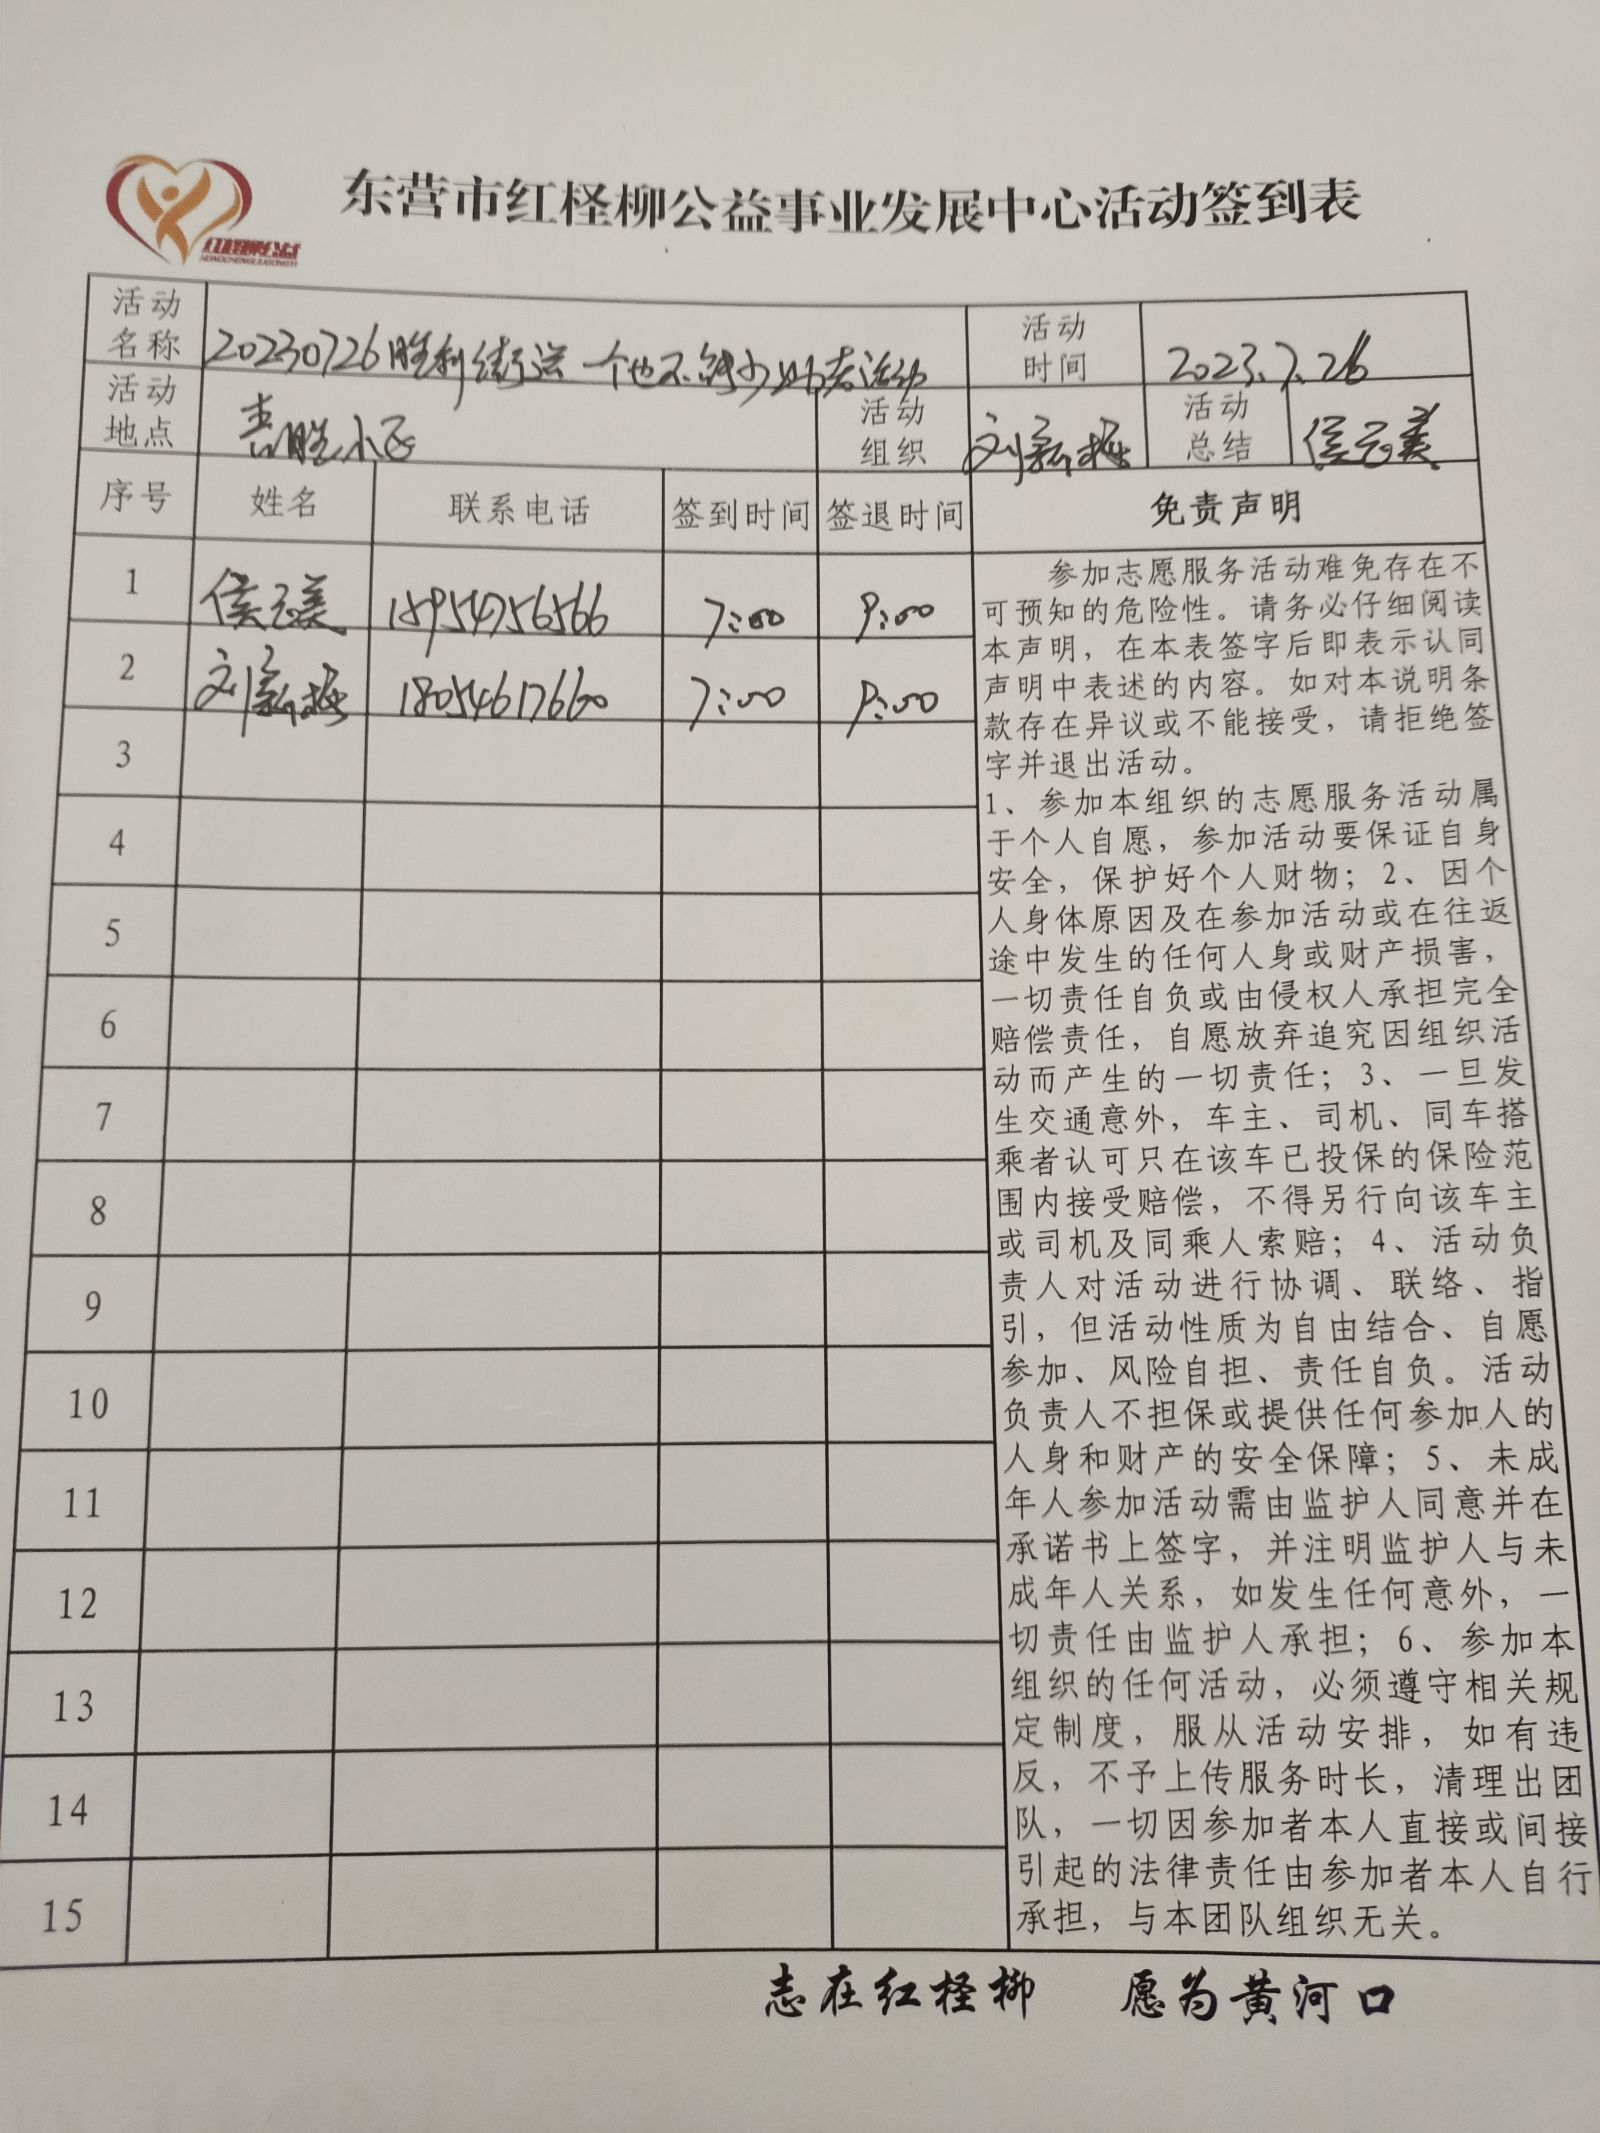 东营市红柽柳公益事业发展中心活动签到表
红柽柳公益
HONGCHENGLIUGONGYI
活动名称
20230726胜利街道一个也不能少助老活动
活动时间
2023.7.26
活动地点
胜小区
活动组织
刘新梅
活动总结
侯云美
序号 姓名 联系电话 签到时间 签退时间 免责声明
1 侯云美 15954756566 7:00 9:00
2 刘新梅 18054617660 7:00 9:00
3
4
5
6
7
8
9
10
11
12
13
14
15
参加志愿服务活动难免存在不
可预知的危险性。请务必仔细阅读
本声明，在本表签字后即表示认同
声明中表述的内容。如对本说明条
款存在异议或不能接受，请拒绝签
字并退出活动。
1、参加本组织的志愿服务活动属
于个人自愿，参加活动要保证自身
安全，保护好个人财物；2、因个
人身体原因及在参加活动或在往返
途中发生的任何人身或财产损害，
一切责任自负或由侵权人承担完全
赔偿责任，自愿放弃追究因组织活
动而产生的一切责任；3、一旦发
生交通意外，车主、司机、同车搭
乘者认可只在该车已投保的保险范
围内接受赔偿，不得另行向该车主
或司机及同乘人索赔；4、活动负
责人对活动进行协调、联络、指
引，但活动性质为自由结合、自愿
参加、风险自担、责任自负。活动
负责人不担保或提供任何参加人的
人身和财产的安全保障；5、未成
年人参加活动需由监护人同意并在
承诺书上签字，并注明监护人与未
成年人关系，如发生任何意外，一
切责任由监护人承担；6、参加本
组织的任何活动，必须遵守相关规
定制度，服从活动安排，如有违
反，不予上传服务时长，清理出团
队，一切因参加者本人直接或间接
引起的法律责任由参加者本人自行
承担，与本团队组织无关。
志在红柽柳 愿为黄河口